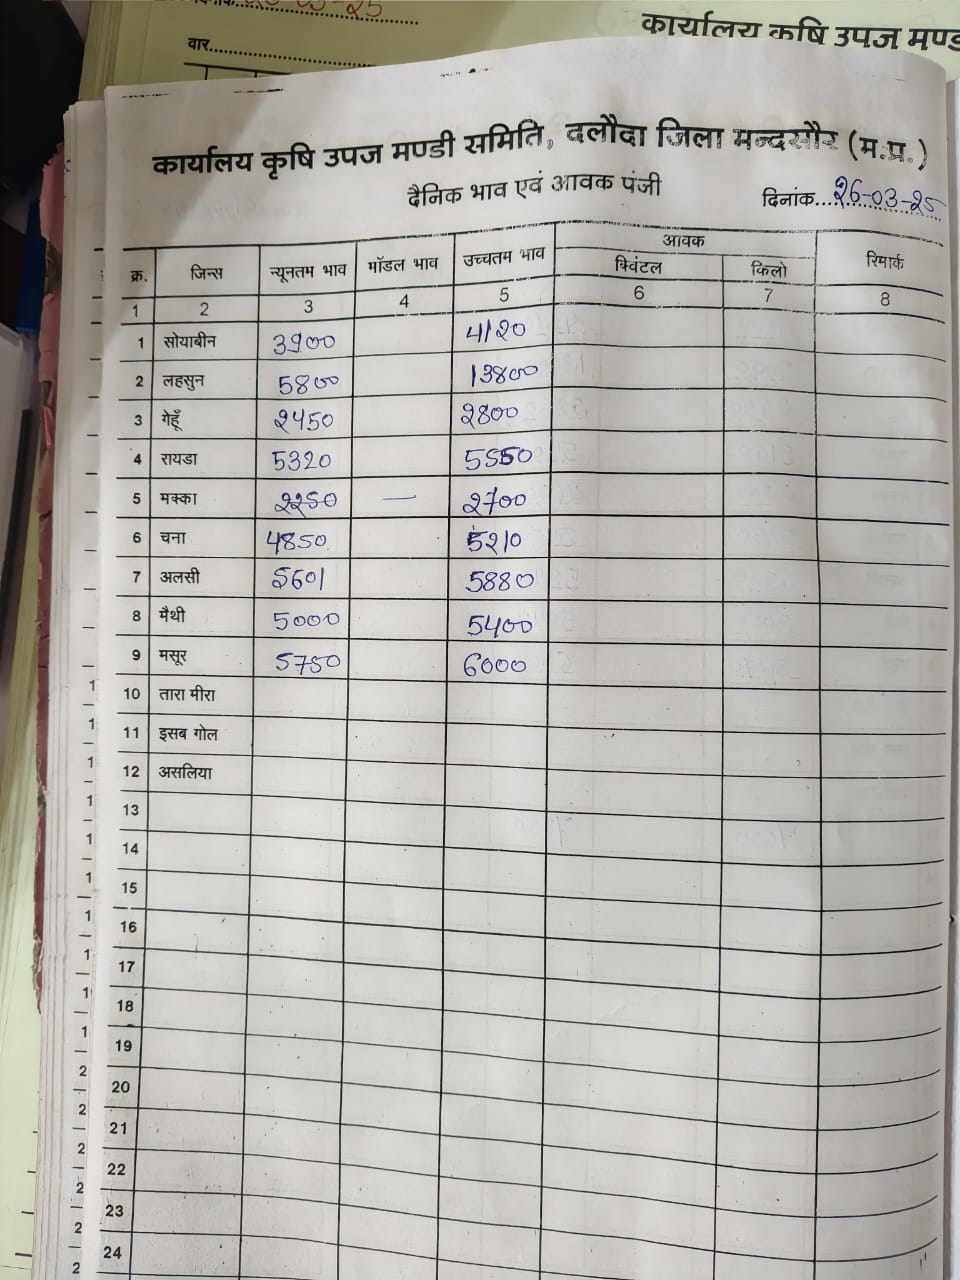 वार
कार्यालय कृषि उपज मण्ड
कार्यालय कृषि उपज मण्डी समिति, दलौदा जिला मन्दसौर (म.प्र.)
दैनिक भाव एवं आवक पंजी
दिनांक 26-03-25
क्र. जिन्स न्यूनतम भाव मॉडल भाव उच्चतम भाव आवक रिमार्क
क्विंटल किलो
1 2 3 4 5 6 7 8
1 सोयाबीन 3900 4120
2 लहसुन 5800 13800
3 गेहूँ 2450 2800
4 रायडा 5320 5550
5 मक्का 2250 — 2700
6 चना 4850 5210
7 अलसी 5601 5880
8 मैथी 5000 5400
9 मसूर 5750 6000
10 तारा मीरा
11 इसब गोल
12 असलिया
13
14
15
16
17
18
19
20
21
22
23
24